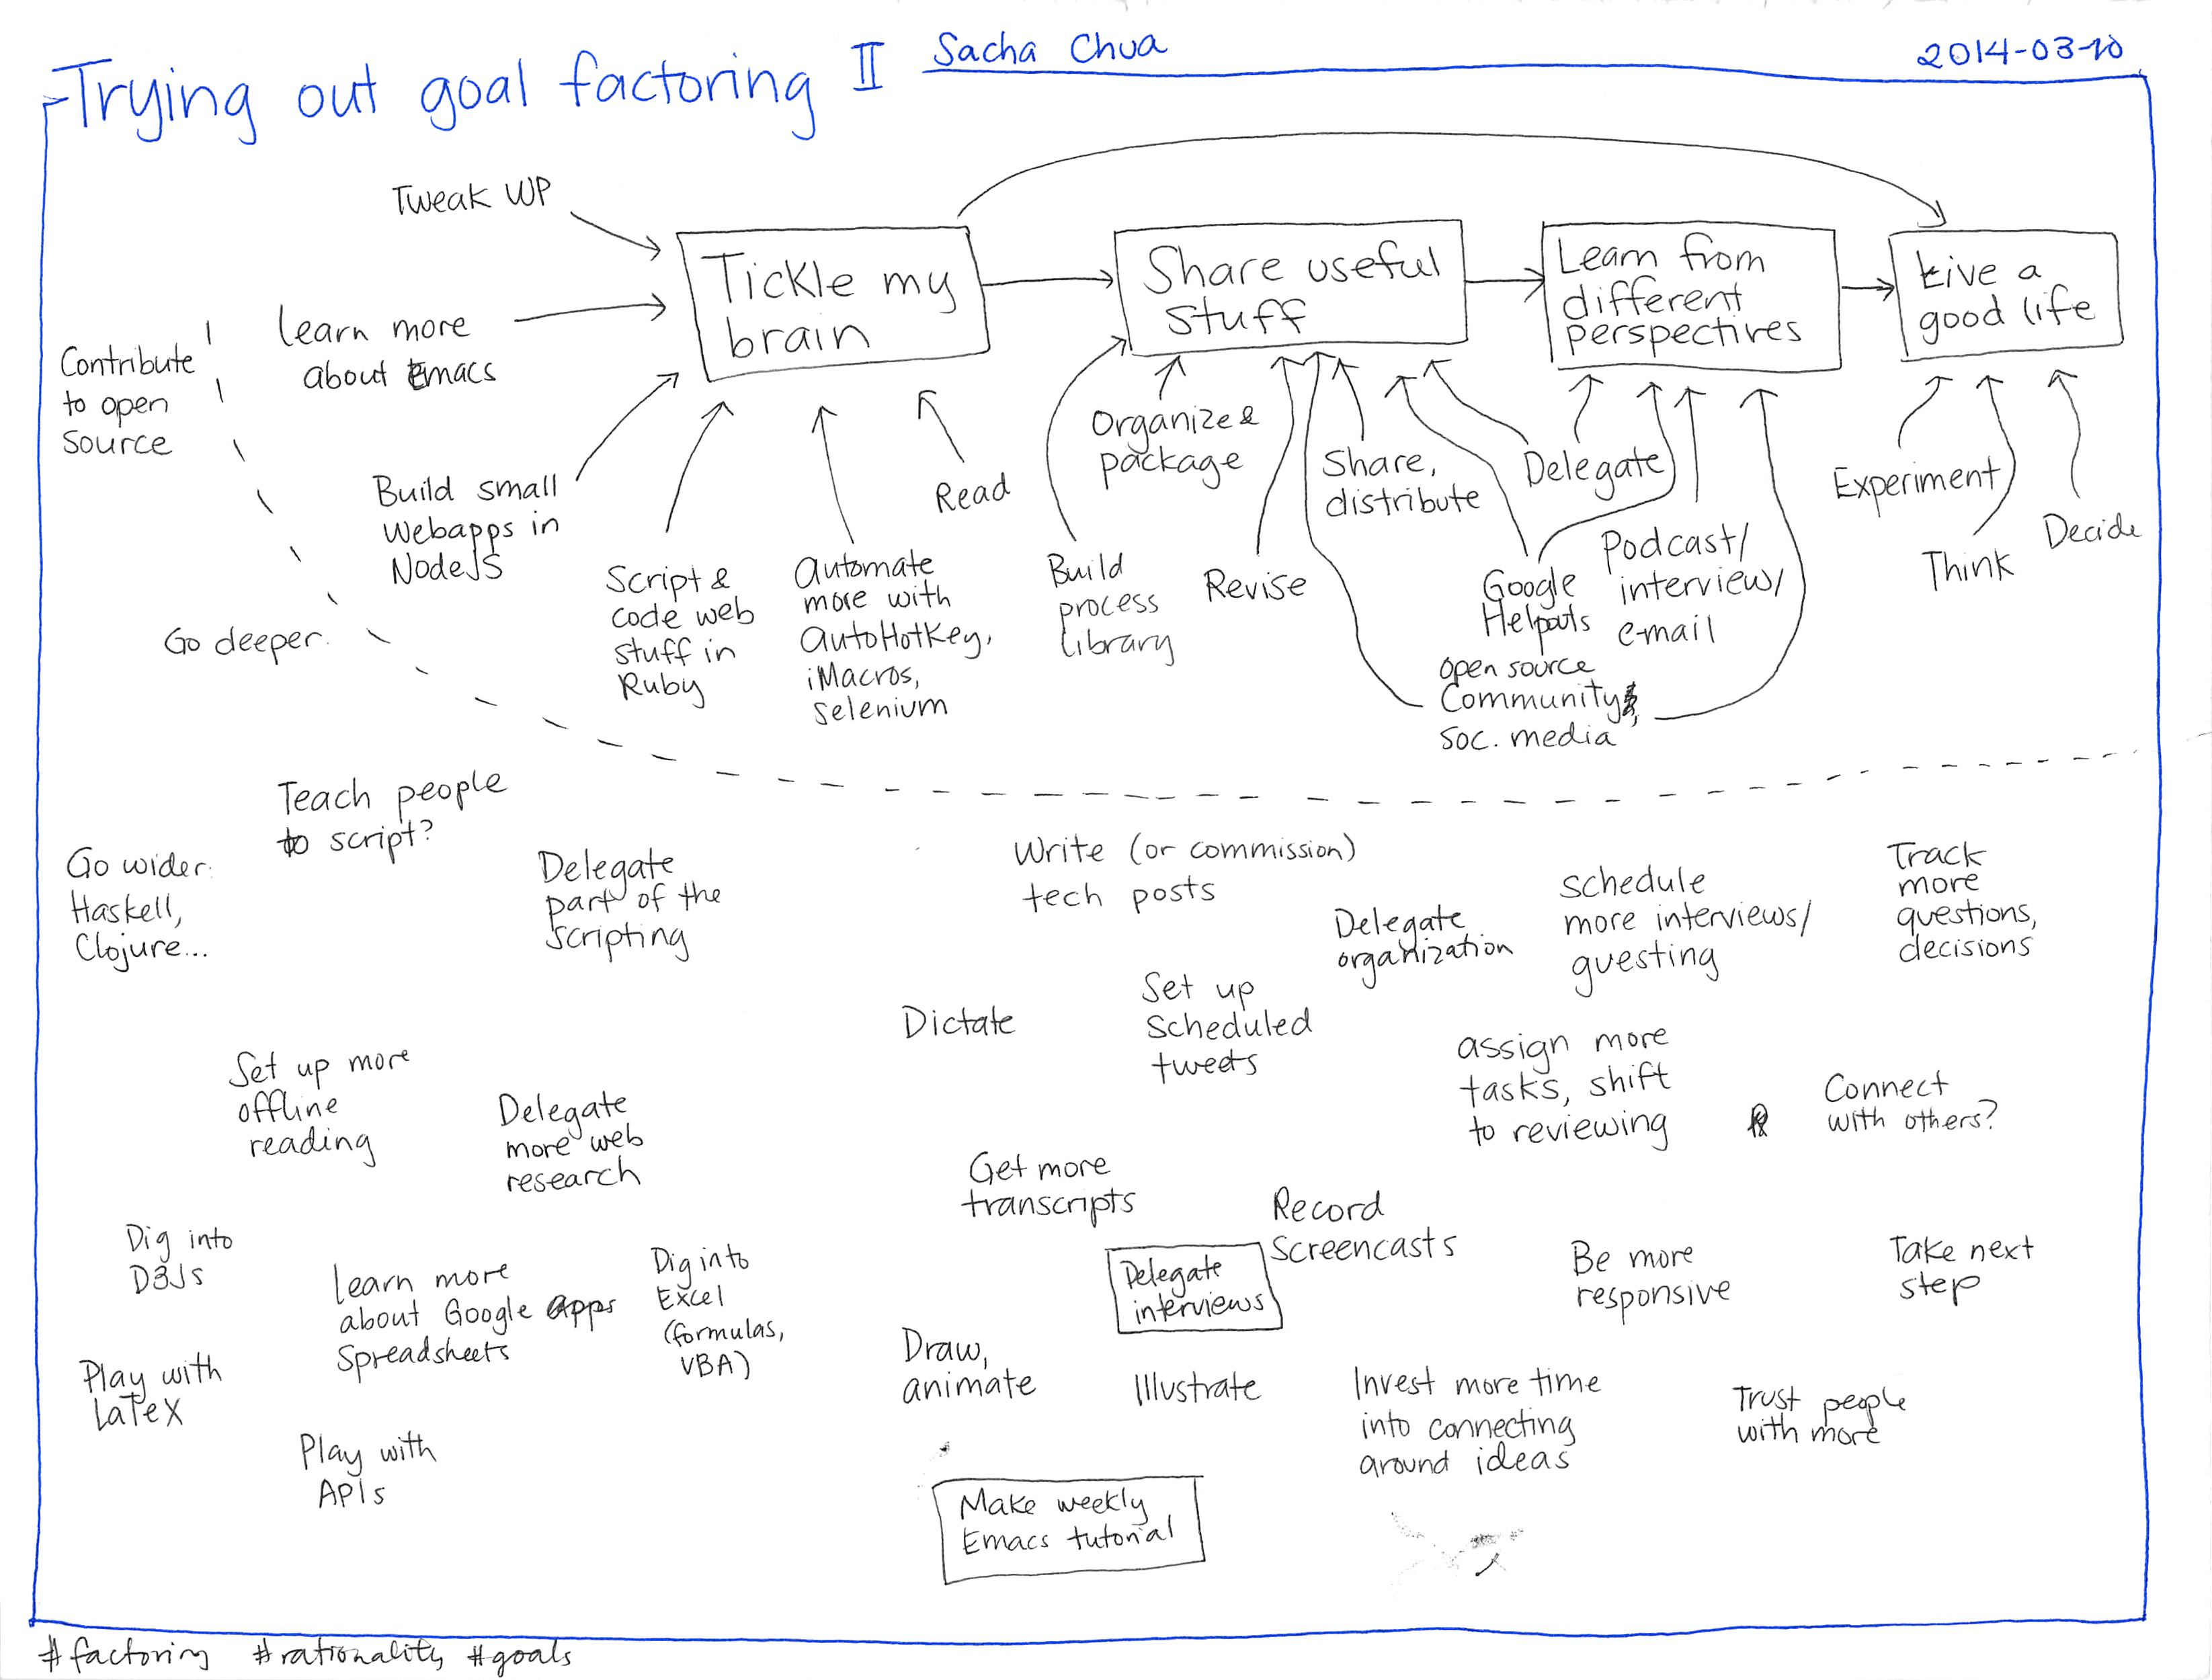 Trying out goal factoring II
Sacha Chua
2014-03-10
Tweak WP
Tickle my
brain
Share useful
stuff
Learn from
different
perspectives
Live a
good life
Contribute
to open
source
learn more
about Emacs
Build small
webapps in
NodeJS
Script &
code web
stuff in
Ruby
Automate
more with
AutoHotKey,
iMacros,
Selenium
Read
Organize &
package
Build
process
library
Revise
Share,
distribute
Delegate
Google
Helpouts
Podcast/
interview/
e-mail
open source
Community,
soc. media
Experiment
Think
Decide
Go deeper.
Teach people
to script?
Go wider:
Haskell,
Clojure...
Delegate
part of the
scripting
Write (or commission)
tech posts
Delegate
organization
Schedule
more interviews/
guesting
Track
more
questions,
decisions
Dictate
Set up
scheduled
tweets
assign more
tasks, shift
to reviewing
Connect
with others?
Set up more
offline
reading
Delegate
more web
research
Get more
transcripts
Record
Screencasts
Delegate
interviews
Be more
responsive
Take next
step
Dig into
D3JS
learn more
about Google apps
Spreadsheets
Dig into
Excel
(formulas,
VBA)
Play with
LaTeX
Draw,
animate
Illustrate
Invest more time
into connecting
around ideas
Trust people
with more
Play with
APIs
Make weekly
Emacs tutorial
#factoring #rationality #goals